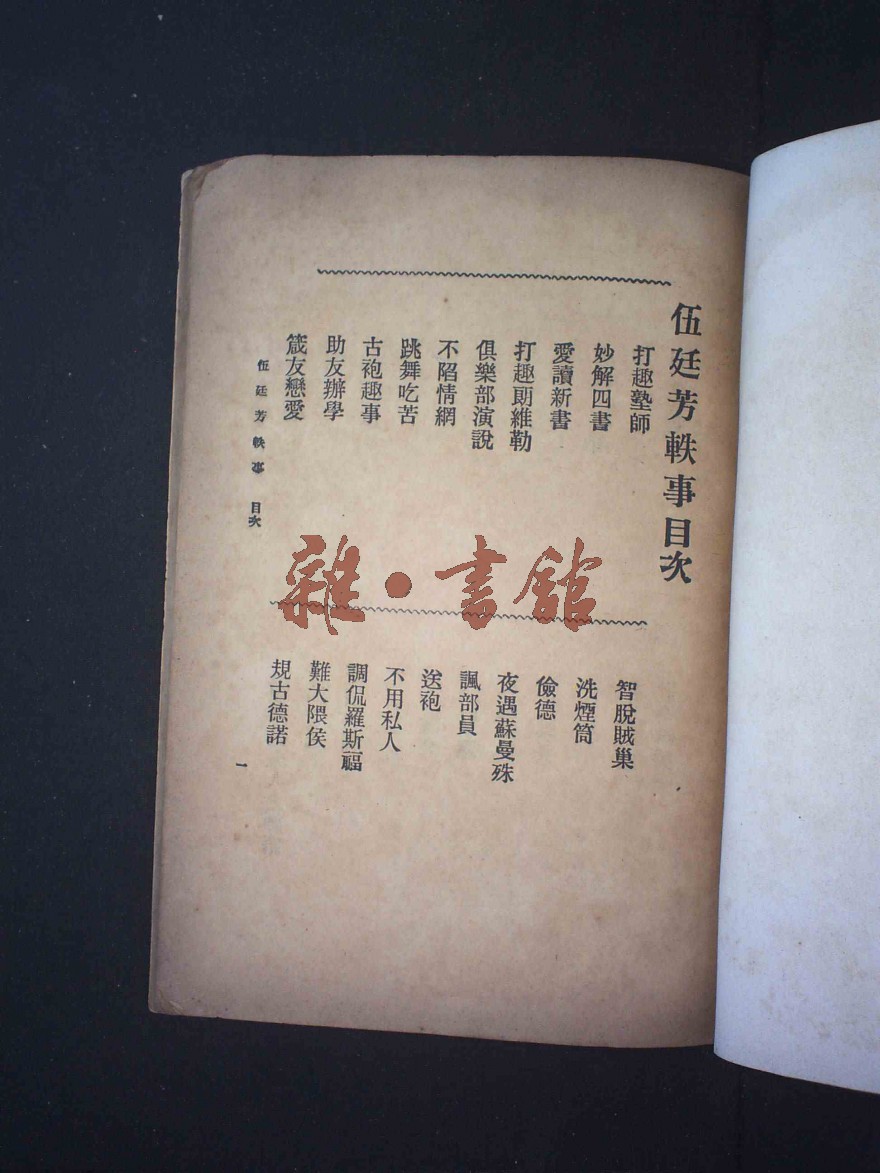 伍廷芳軼事目次
打趣塾師
妙解四書
愛讀新書
打趣剛維勒
俱樂部演說
不陷情網
跳舞吃苦
古袍趣事
助友辦學
箴友戀愛
智脫賊巢
洗煙筒
儉德
夜遇蘇曼殊
諷部員
送袍
不用私人
調侃羅斯福
難大隈侯
規古德諾
伍廷芳軼事 目次
一
雜·書館